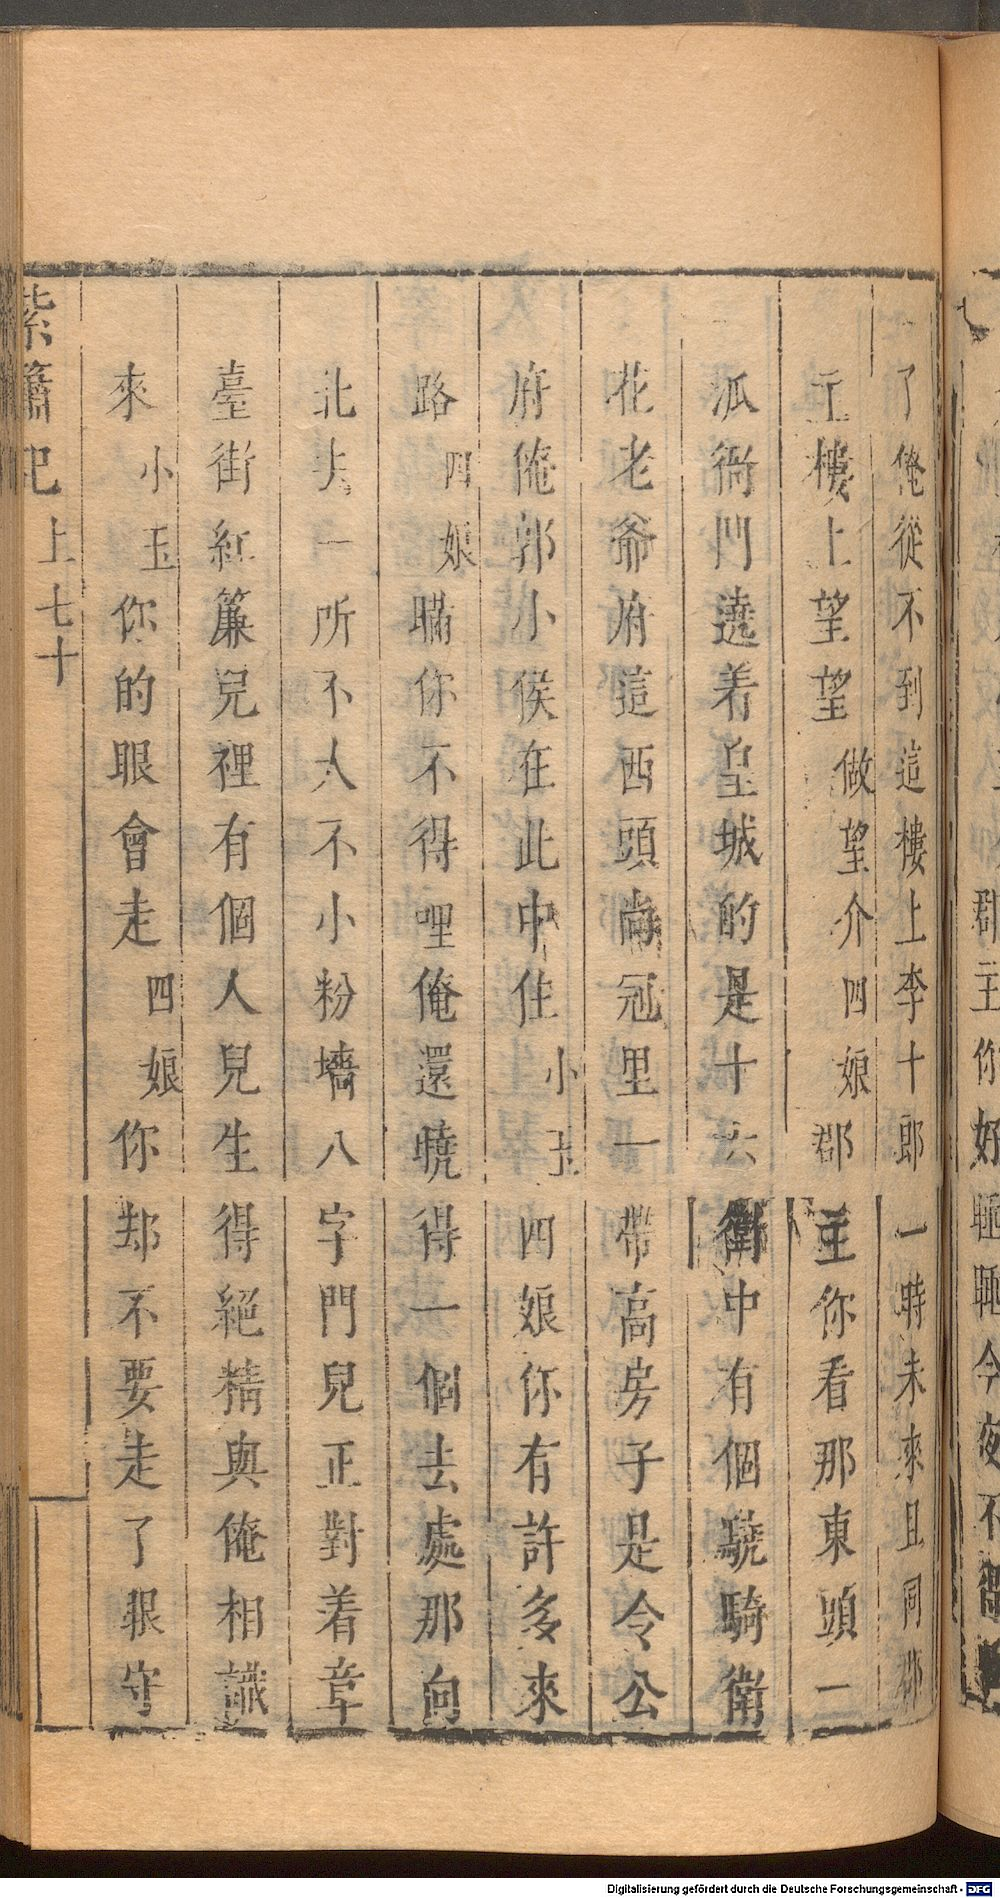 了俺從不到這樓上李十郎一時未來且同郡
主樓上望望做望介四娘郡主你看那東頭一
派衙門遶着皇城的是十六衛中有個驍騎衛
花老爺府這西頭尚冠里一帶高房子是令公
府俺郭小侯在此中住小玉四娘你有許多來
路四娘瞞你不得哩俺還曉得一個去處那向
北去一所不大不小粉墻八字門兒正對着章
臺街紅簾兒裡有個人兒生得絕精與俺相識
來小玉你的眼會走四娘你却不要走了眼守
紫簫記 上 七十
郡主你好睡睡今夜不
Digitalisierung gefördert durch die Deutsche Forschungsgemeinschaft - DFG